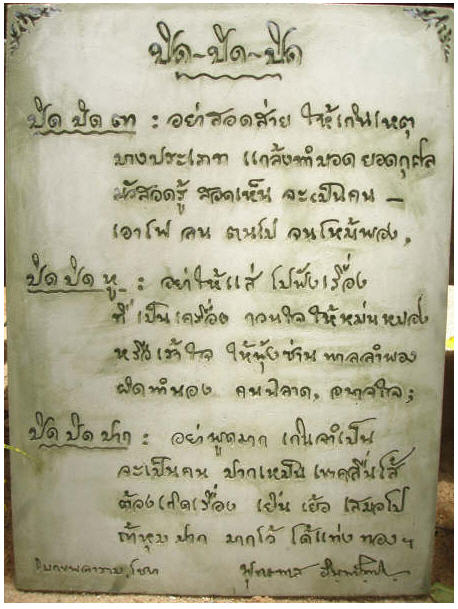 ปิด-ปิด-ปิด
ปิด ปิด ตา : อย่าสอดส่าย ให้เกินเหตุ
บางประเภท แกล้งทำบอด ยอดกุศล
มัวสอดรู้ สอดเห็น จะเป็นคน –
เอาไฟ ลน ตนไป จนไหม้พอง.
ปิด ปิด หู : อย่าให้แส่ ไปฟังเรื่อง
ที่ เป็นเครื่อง กวนใจ ให้หม่นหมอง
หรือเร้าใจ ให้ฟุ้งซ่าน พาลลำพอง
ผิดทำนอง คนฉลาด, อนาถใจ;
ปิด ปิด ปาก : อย่าพูดมาก เกินจำเป็น
จะเป็นคน ปากเหม็น เขาคลื่นไส้
ต้องเกิดเรื่อง เยิ่น เย้อ เสมอไป
ถ้าหุบ ปาก มากไว้ ได้แท่ง ทองฯ
พุทธทาส อินทปัญโญ